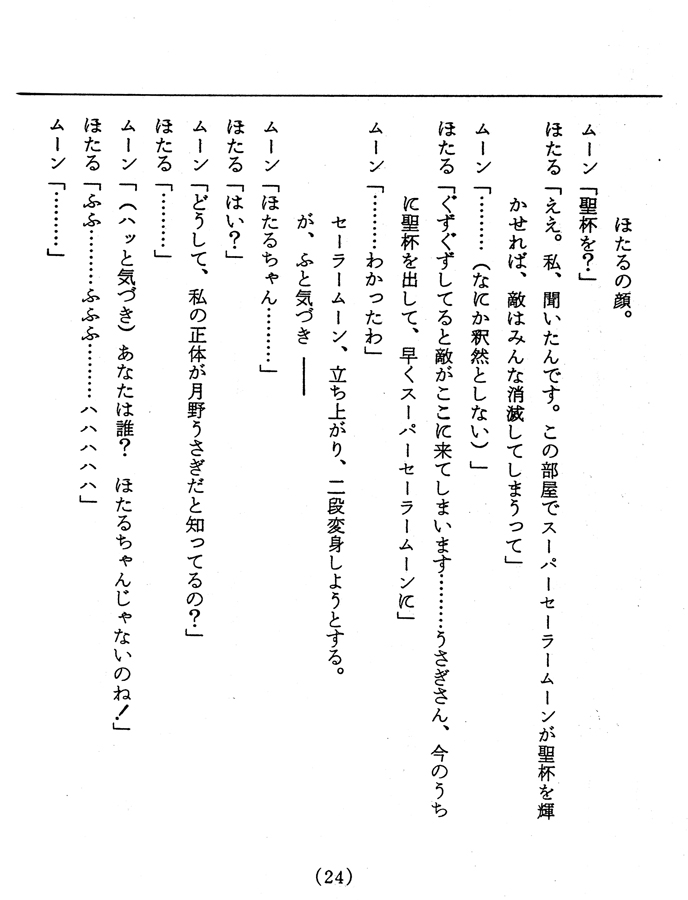 ほたるの顔。
ムーン「聖杯を？」
ほたる「ええ。私、聞いたんです。この部屋でスーパーセーラームーンが聖杯を輝
かせれば、敵はみんな消滅してしまうって」
ムーン「………（なにか釈然としない）」
ほたる「ぐずぐずしてると敵がここに来てしまいます………うさぎさん、今のうち
に聖杯を出して、早くスーパーセーラームーンに」
ムーン「………わかったわ」
セーラームーン、立ち上がり、二段変身しようとする。
が、ふと気づき――
ムーン「ほたるちゃん………」
ほたる「はい？」
ムーン「どうして、私の正体が月野うさぎだと知ってるの？」
ほたる「………」
ムーン「（ハッと気づき）あなたは誰？　ほたるちゃんじゃないのね！」
ほたる「ふふ………ふふふ………ハハハハハ」
ムーン「………」
(24)